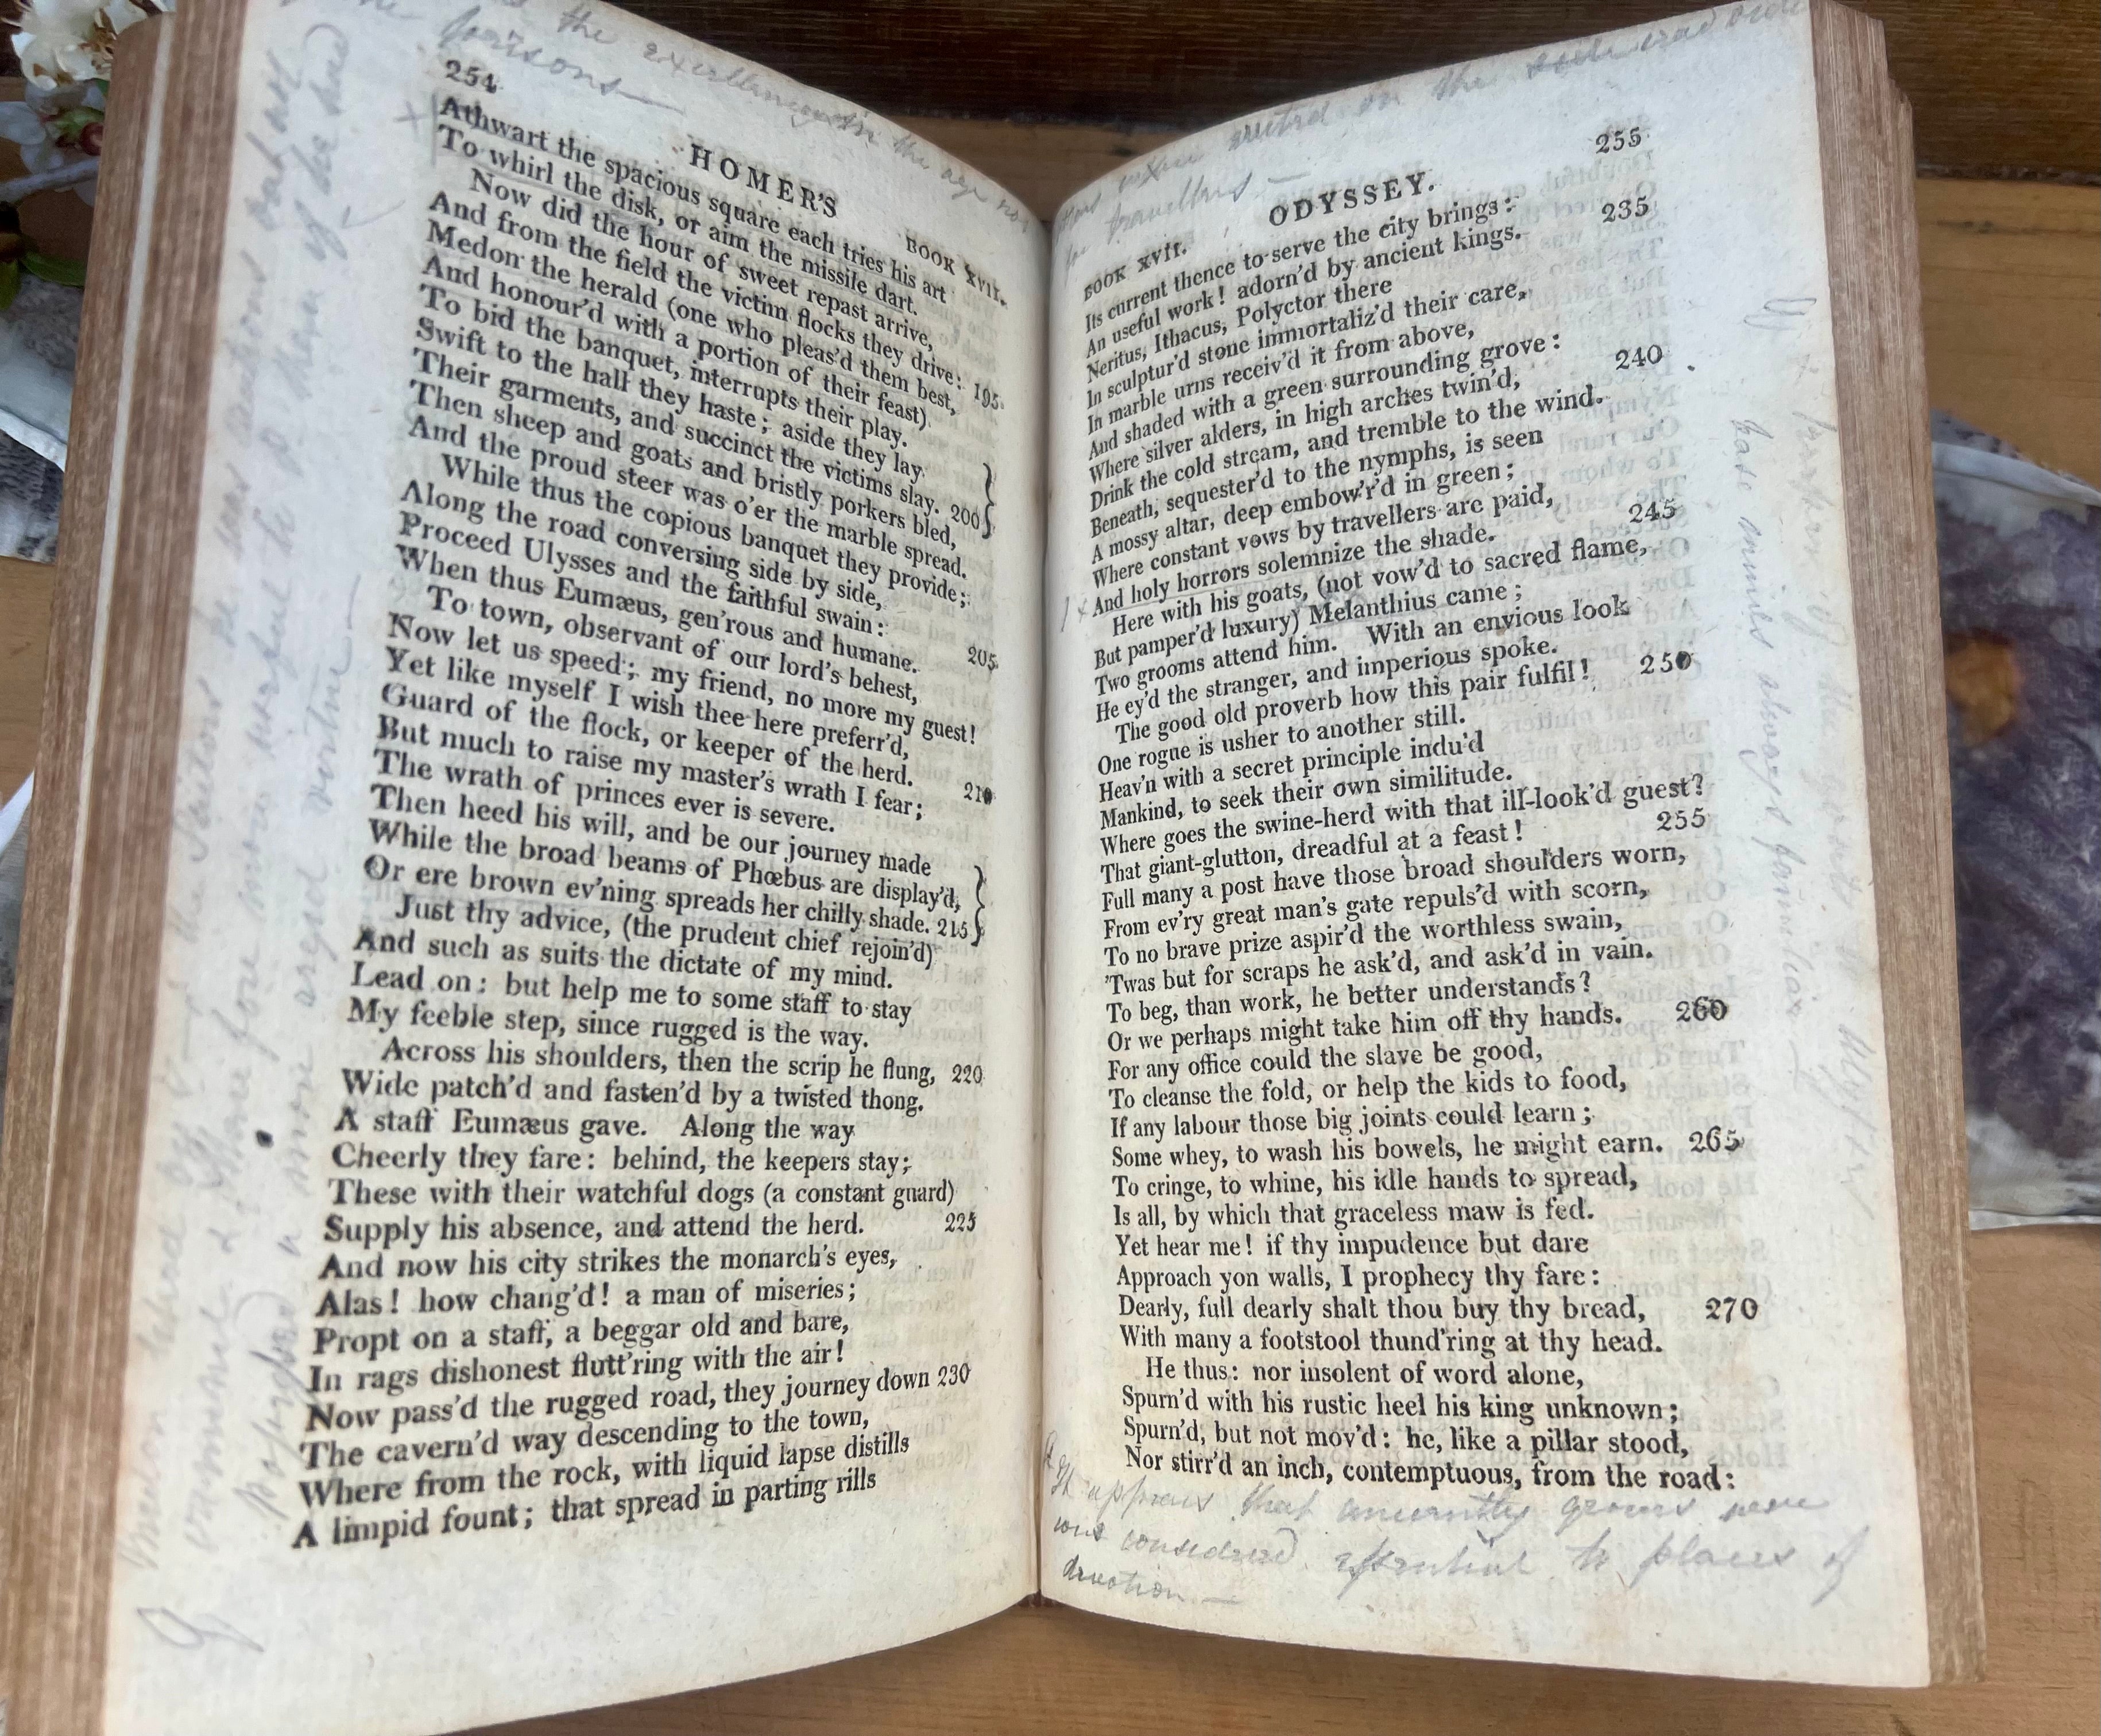 the excellency in the age
254
HOMER'S
BOOK XVII.
Athwart the spacious square each tries his art
To whirl the disk, or aim the missile dart.
Now did the hour of sweet repast arrive,
And from the field the victim flocks they drive:
Medon the herald (one who pleas'd them best, 195
And honour'd with a portion of their feast)
To bid the banquet, interrupts their play.
Swift to the hall they haste; aside they lay
Their garments, and succinct the victims slay.
Then sheep and goats and bristly porkers bled, 200
And the proud steer was o'er the marble spread.
While thus the copious banquet they provide;
Along the road conversing side by side,
Proceed Ulysses and the faithful swain:
When thus Eumæus, gen'rous and humane. 205
To town, observant of our lord's behest,
Now let us speed; my friend, no more my guest!
Yet like myself I wish thee here preferr'd,
Guard of the flock, or keeper of the herd.
But much to raise my master's wrath I fear; 210
The wrath of princes ever is severe.
Then heed his will, and be our journey made
While the broad beams of Phœbus are display'd,
Or ere brown ev'ning spreads her chilly shade. 215
Just thy advice, (the prudent chief rejoin'd)
And such as suits the dictate of my mind.
Lead on: but help me to some staff to stay
My feeble step, since rugged is the way.
Across his shoulders, then the scrip he flung, 220
Wide patch'd and fasten'd by a twisted thong.
A staff Eumæus gave. Along the way
Cheerly they fare: behind, the keepers stay;
These with their watchful dogs (a constant guard)
Supply his absence, and attend the herd. 225
And now his city strikes the monarch's eyes,
Alas! how chang'd! a man of miseries;
Propt on a staff, a beggar old and bare,
In rags dishonest flutt'ring with the air!
Now pass'd the rugged road, they journey down 230
The cavern'd way descending to the town,
Where from the rock, with liquid lapse distills
A limpid fount; that spread in parting rills
on the
travellers —
255
BOOK XVII.
ODYSSEY.
Its current thence to serve the city brings: 235
An useful work! adorn'd by ancient kings.
Neritus, Ithacus, Polyctor there
In sculptur'd stone immortaliz'd their care,
In marble urns receiv'd it from above,
And shaded with a green surrounding grove: 240
Where silver alders, in high arches twin'd,
Drink the cold stream, and tremble to the wind.
Beneath, sequester'd to the nymphs, is seen
A mossy altar, deep embow'r'd in green;
Where constant vows by travellers are paid, 245
And holy horrors solemnize the shade.
Here with his goats, (not vow'd to sacred flame,
But pamper'd luxury) Melanthius came;
Two grooms attend him. With an envious look
He ey'd the stranger, and imperious spoke. 250
The good old proverb how this pair fulfil!
One rogue is usher to another still.
Heav'n with a secret principle indu'd
Mankind, to seek their own similitude.
Where goes the swine-herd with that ill-look'd guest?
That giant-glutton, dreadful at a feast! 255
Full many a post have those broad shoulders worn,
From ev'ry great man's gate repuls'd with scorn,
To no brave prize aspir'd the worthless swain,
'Twas but for scraps he ask'd, and ask'd in vain.
To beg, than work, he better understands?
Or we perhaps might take him off thy hands. 260
For any office could the slave be good,
To cleanse the fold, or help the kids to food,
If any labour those big joints could learn;
Some whey, to wash his bowels, he might earn. 265
To cringe, to whine, his idle hands to spread,
Is all, by which that graceless maw is fed.
Yet hear me! if thy impudence but dare
Approach yon walls, I prophecy thy fare:
Dearly, full dearly shalt thou buy thy bread, 270
With many a footstool thund'ring at thy head.
He thus: nor insolent of word alone,
Spurn'd with his rustic heel his king unknown;
Spurn'd, but not mov'd: he, like a pillar stood,
Nor stirr'd an inch, contemptuous, from the road:
It appears that anciently groves were
considered essential to places of
devotion —
base minds always familiar